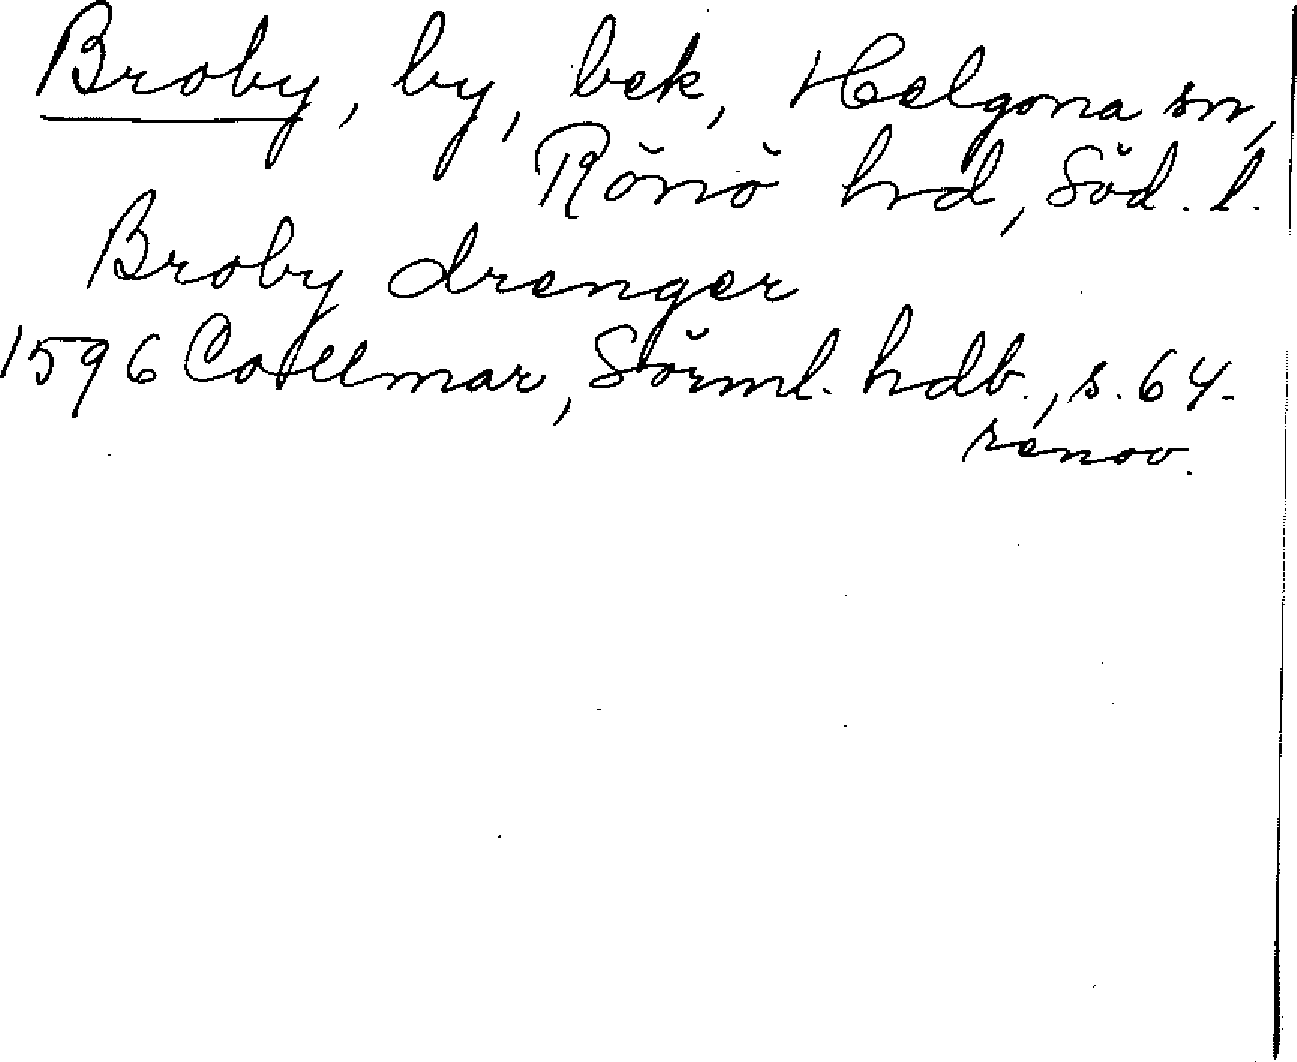 Broby, by, bek, Helgona sn,
Rönö hd, Söd. l.
Broby drenger
1596 Collmar, Sörml. hdb., s. 64.
renov.